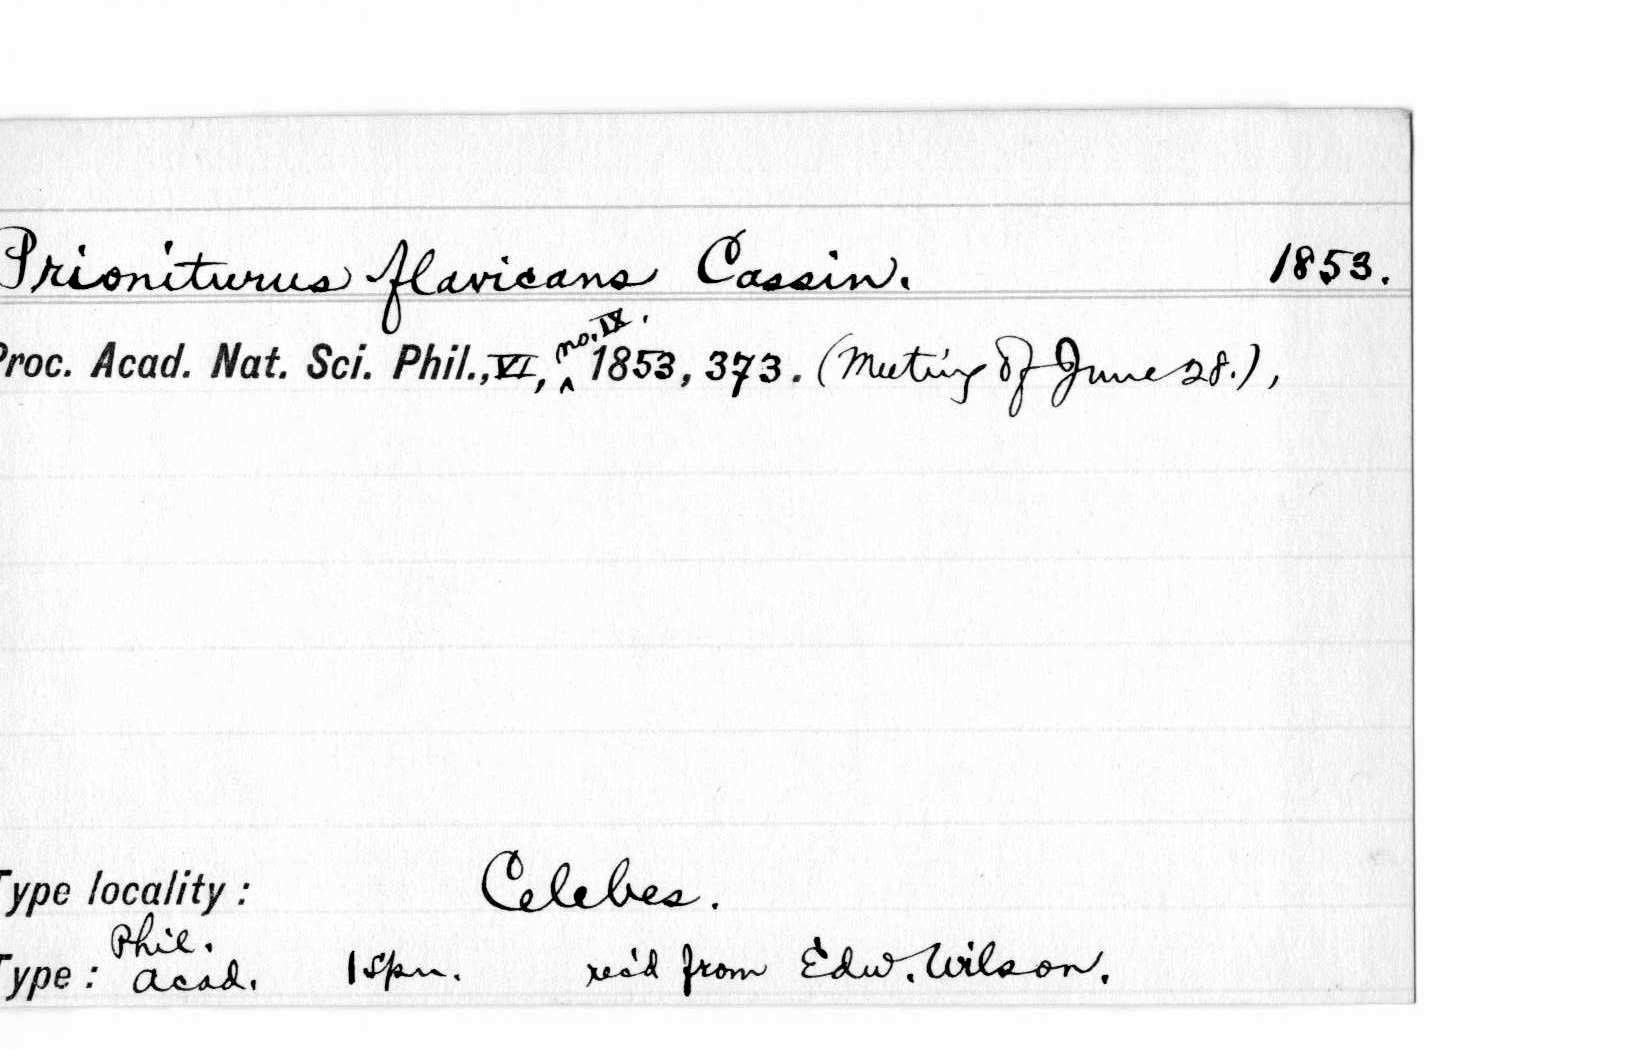 Prioniturus flavicans Cassin. 1853.
Proc. Acad. Nat. Sci. Phil., VI, no. IX. 1853, 373. (Meeting of June 28.),
Type locality: Celebes.
Phil.
Type: Acad. 1 spn. rec'd from Edw. Wilson.